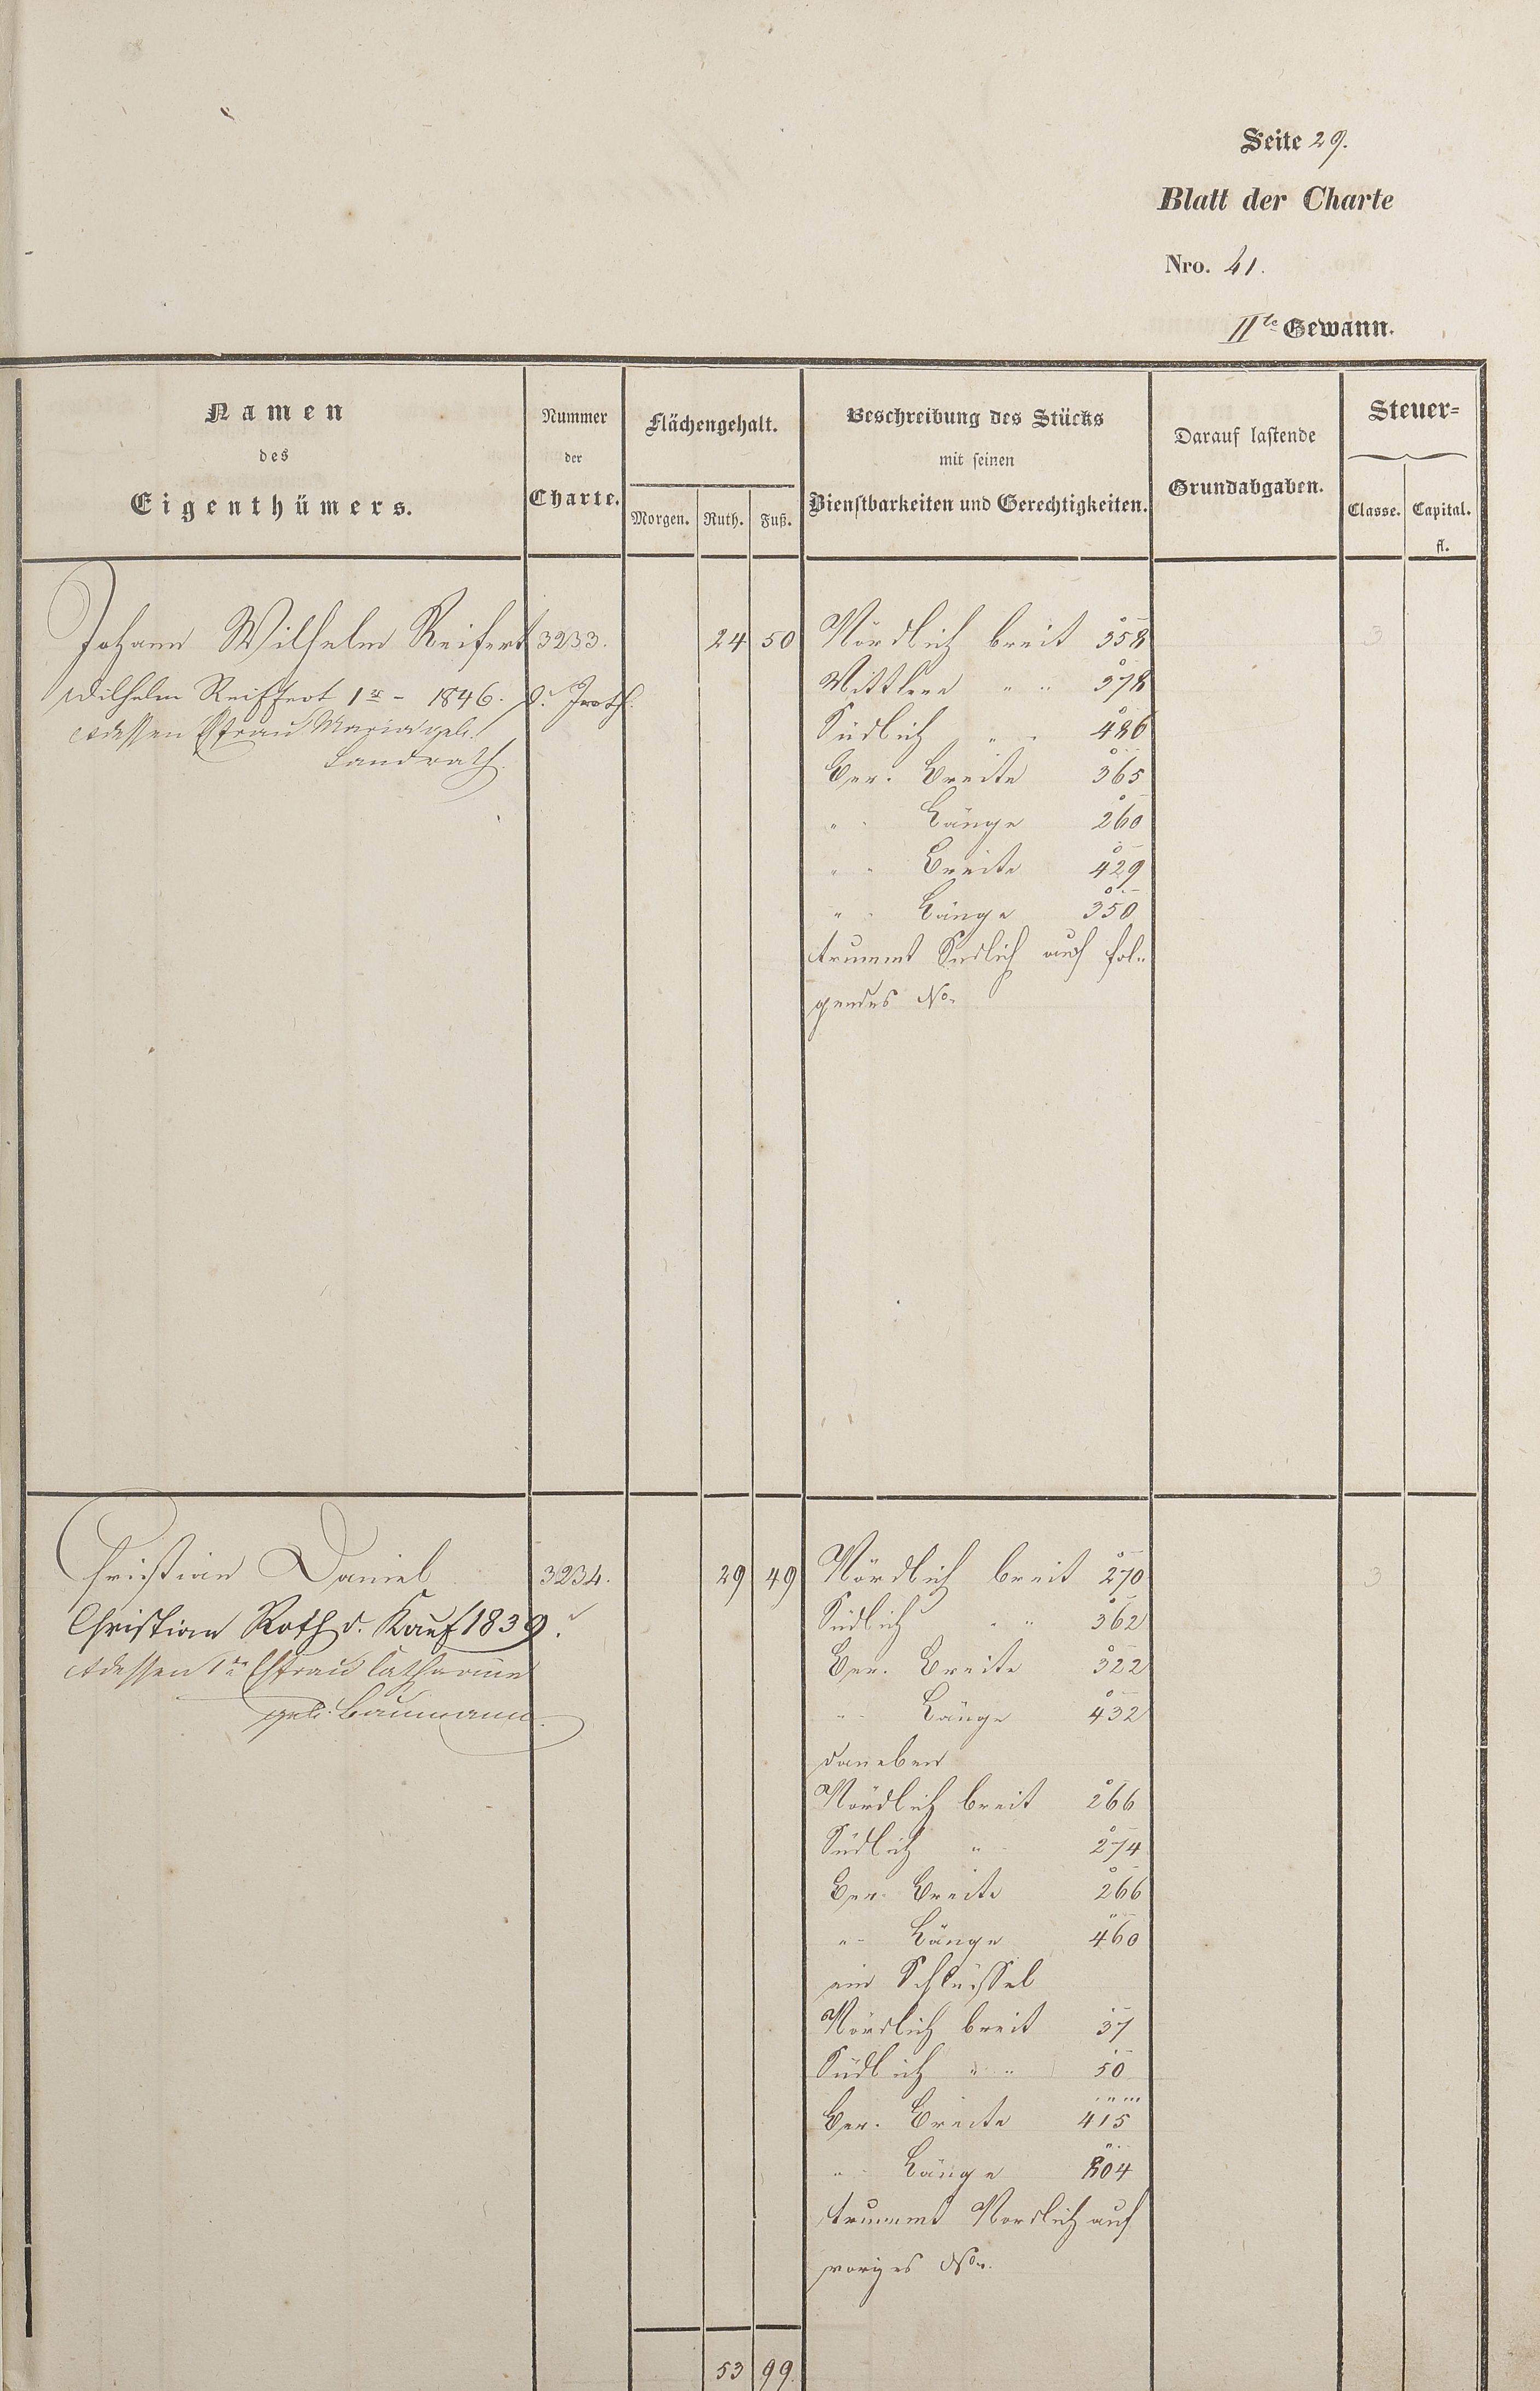 Seite 29.
Blatt der Charte
Nro. 41.
IIte Gewann.
Namen
des
Eigenthümers.
Nummer
der
Charte.
Flächengehalt.
Morgen. Ruth. Fuß.
Beschreibung des Stücks
mit seinen
Dienstbarkeiten und Gerechtigkeiten.
Darauf lastende
Grundabgaben.
Steuer-
Classe. Capital.
fl.
Johann Wilhelm Reifert 3233. 24 50 Nördlich breit 358 3
Wilhelm Reiffert 1r - 1846.
Mittlere " " 378
Südlich " " 486
dessen Ehfrau Maria geb.
Landrath
Ber. Breite 365
" " Länge 260
" " Breite 429
" " Länge 350
trummt Südlich auf fol-
gendes No.
Christian Daniel 3234. 29 49 Nördlich breit 270 3
Christian Roth d. Kauf 1839.
Südlich " " 362
dessen 1te Ehfrau Catharine
Ber. Breite 322
geb. Baumann.
" " Länge 432
daneben
Nördlich breit 266
Südlich " 274
Ber. Breite 266
" " Länge 460
ein Schlüssel
Nördlich breit 37
Südlich " " 50
Ber. Breite 415
" " Länge 804
trummt Nordlich auf
voriges No.
53 99.